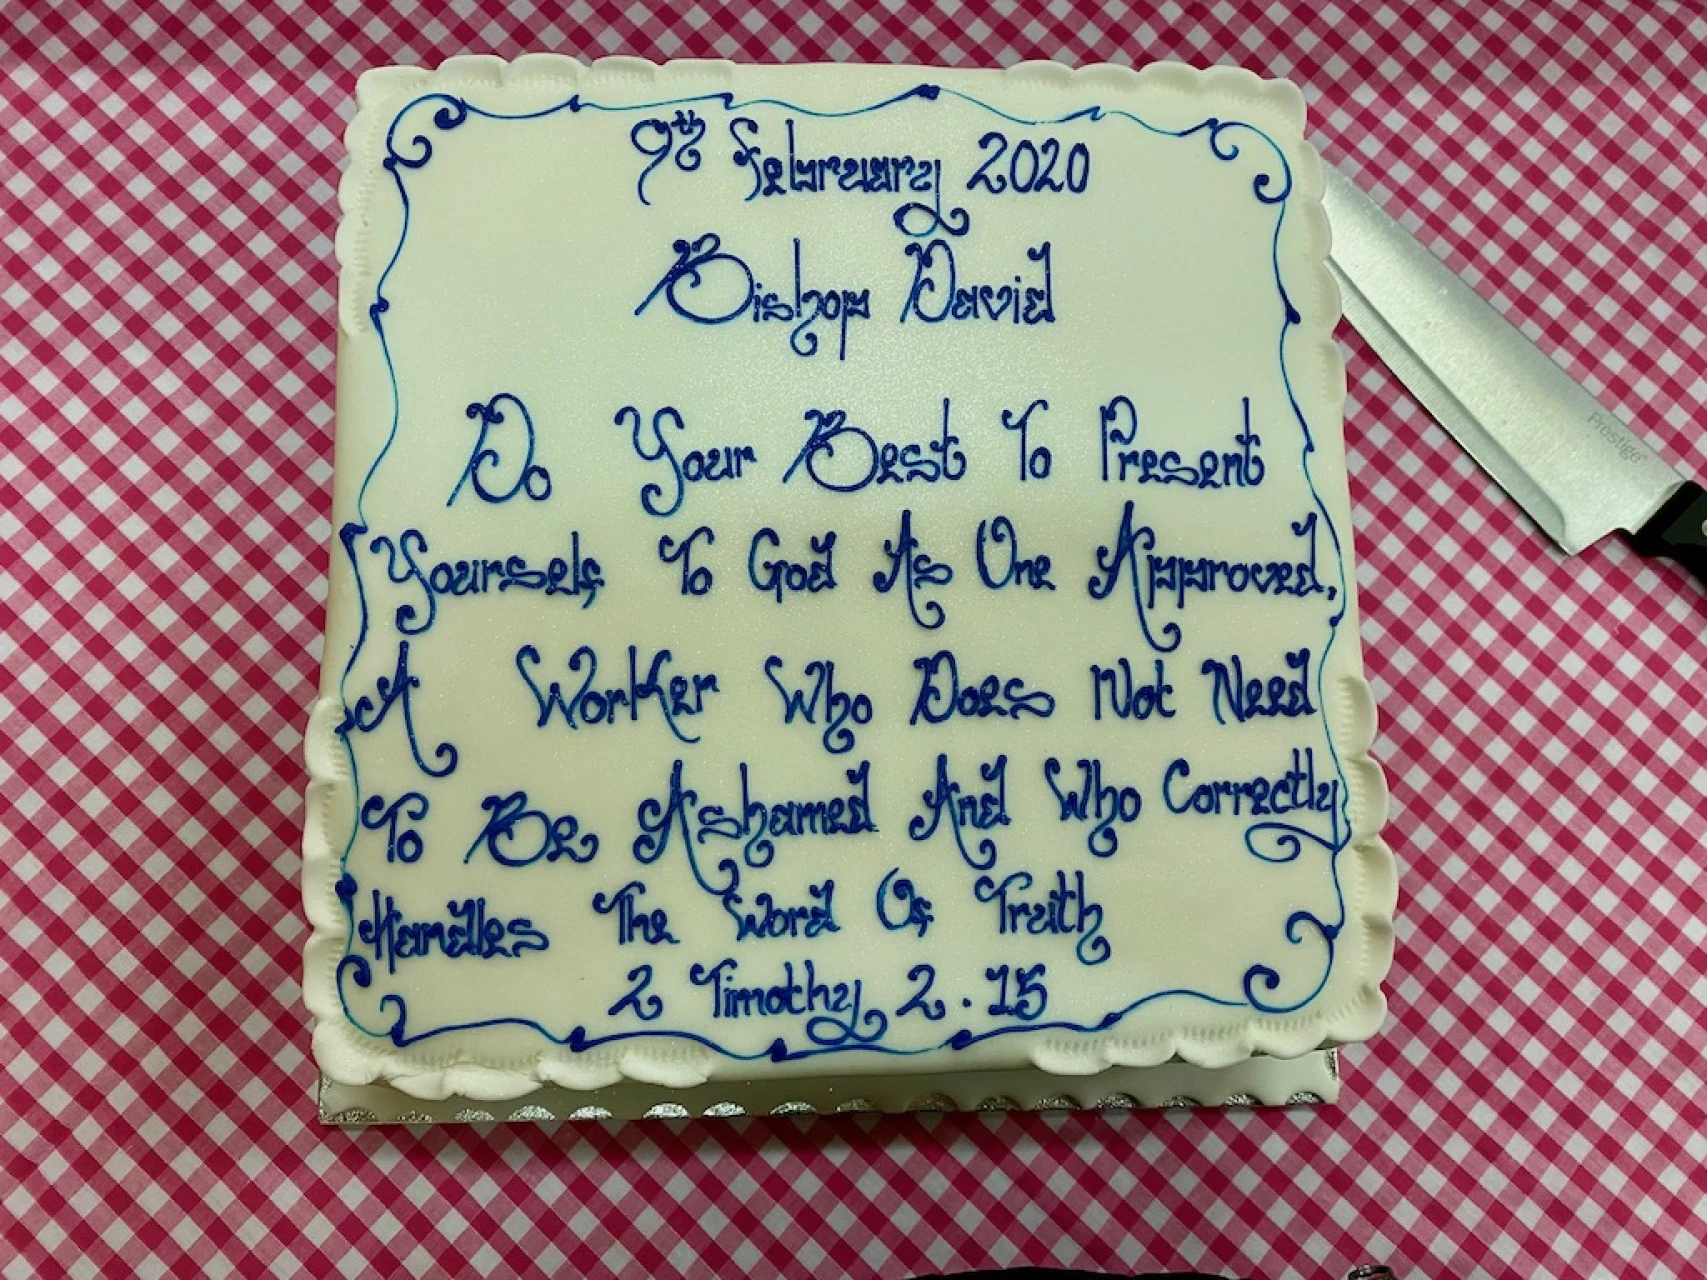 9th February 2020
Bishop David
Do Your Best To Present
Yourself To God As One Approved,
A Worker Who Does Not Need
To Be Ashamed And Who Correctly
Handles The Word Of Truth
2 Timothy 2.15
Prestige